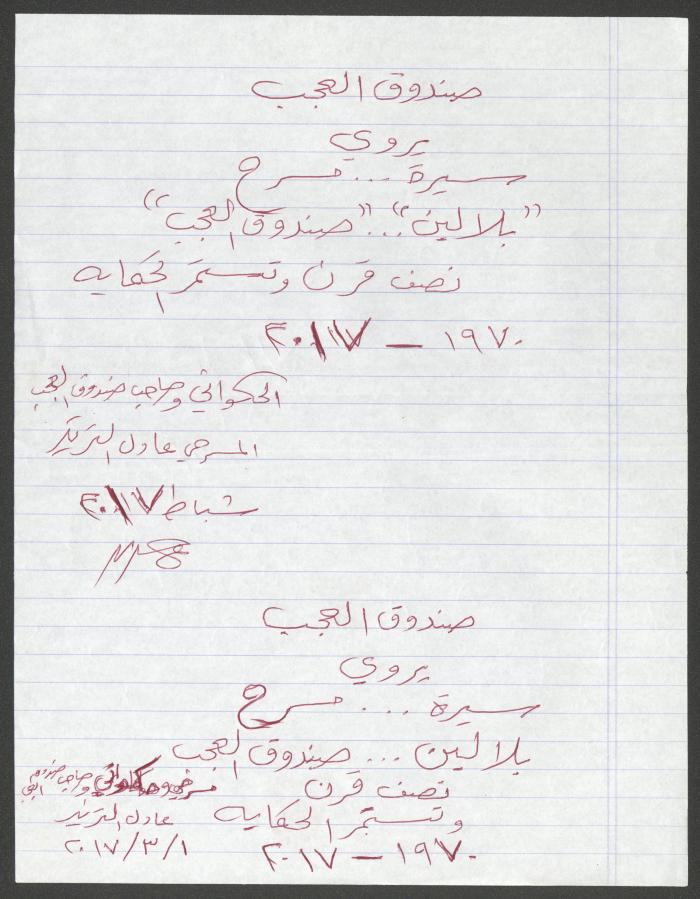 صندوق العجب
يروي
سيرة ... مسرح
"بلالين" .. "صندوق العجب"
نصف قرن وتستمر الحكايه
١٩٧٠ — ٢٠١٧
الحكواتي وصاحب صندوق العجب
المسرحي عادل الترتير
شباط ٢٠١٧
صندوق العجب
يروي
سيرة ... مسرح
بلالين ... صندوق العجب
نصف قرن
وتستمر الحكايه
١٩٧٠ — ٢٠١٧
وصاحب صندوق العجب
عادل الترتير
٢٠١٧/٣/١